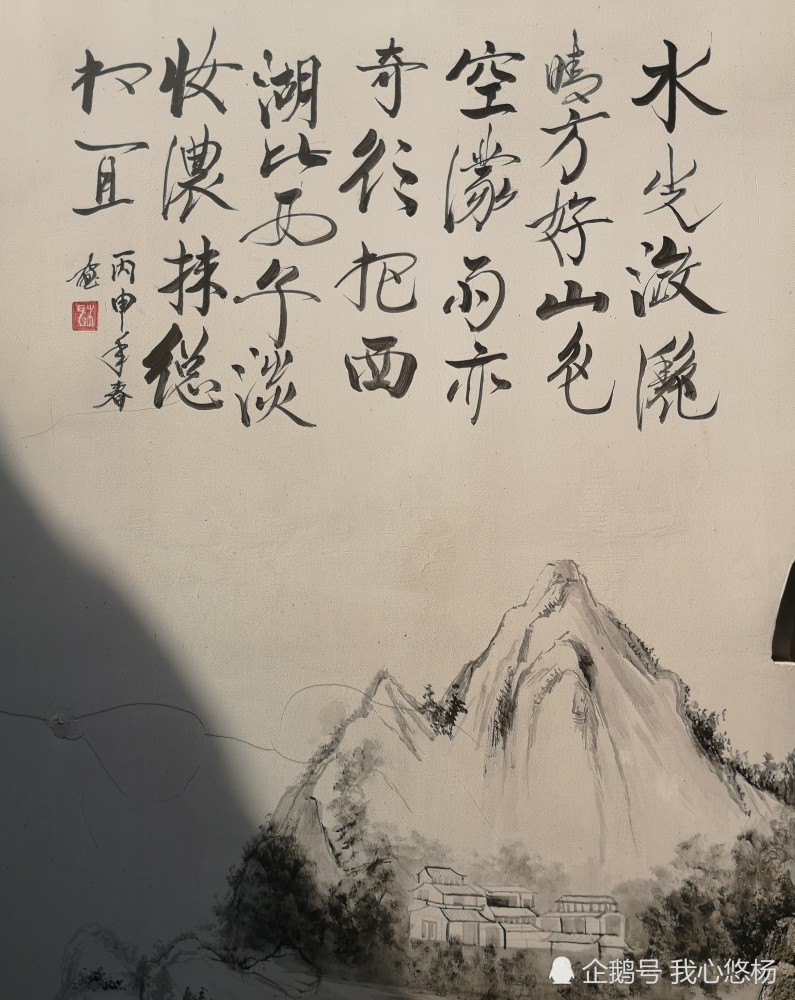 水光潋灧
晴方好山色
空濛雨亦
奇欲把西
湖比西子淡
妆濃抹總
相宜
丙申年春
企鹅号 我心悠杨